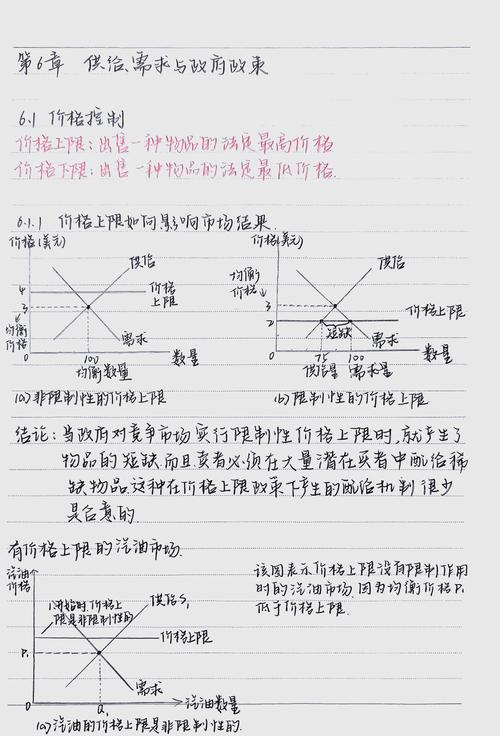 第6章 供给、需求与政府政策
6.1 价格控制
价格上限：出售一种物品的法定最高价格
价格下限：出售一种物品的法定最低价格.
6.1.1 价格上限如何影响市场结果.
价格(美元)
供给
4
价格
上限
3
均衡
价格
需求
100
数量
均衡数量
(a)非限制性的价格上限
价格(美元)
供给
均衡
价格
3
价格上限
2
短缺
需求
75
100
数量
供给量
需求量
(b)限制性的价格上限
结论：当政府对竞争市场实行限制性价格上限时,就产生了
物品的短缺,而且,卖者必须在大量潜在买者中配给稀
缺物品,这种在价格上限政策下产生的配给机制很少
是合意的.
有价格上限的汽油市场.
汽油
价格
1.开始时,价格上
限是非限制性的
供给S1
价格上限
P1
需求
0
Q1
汽油数量
(a)汽油的价格上限是非限制性的.
该图表示价格上限没有限制作用
时的汽油市场,因为均衡价格P1
低于价格上限.